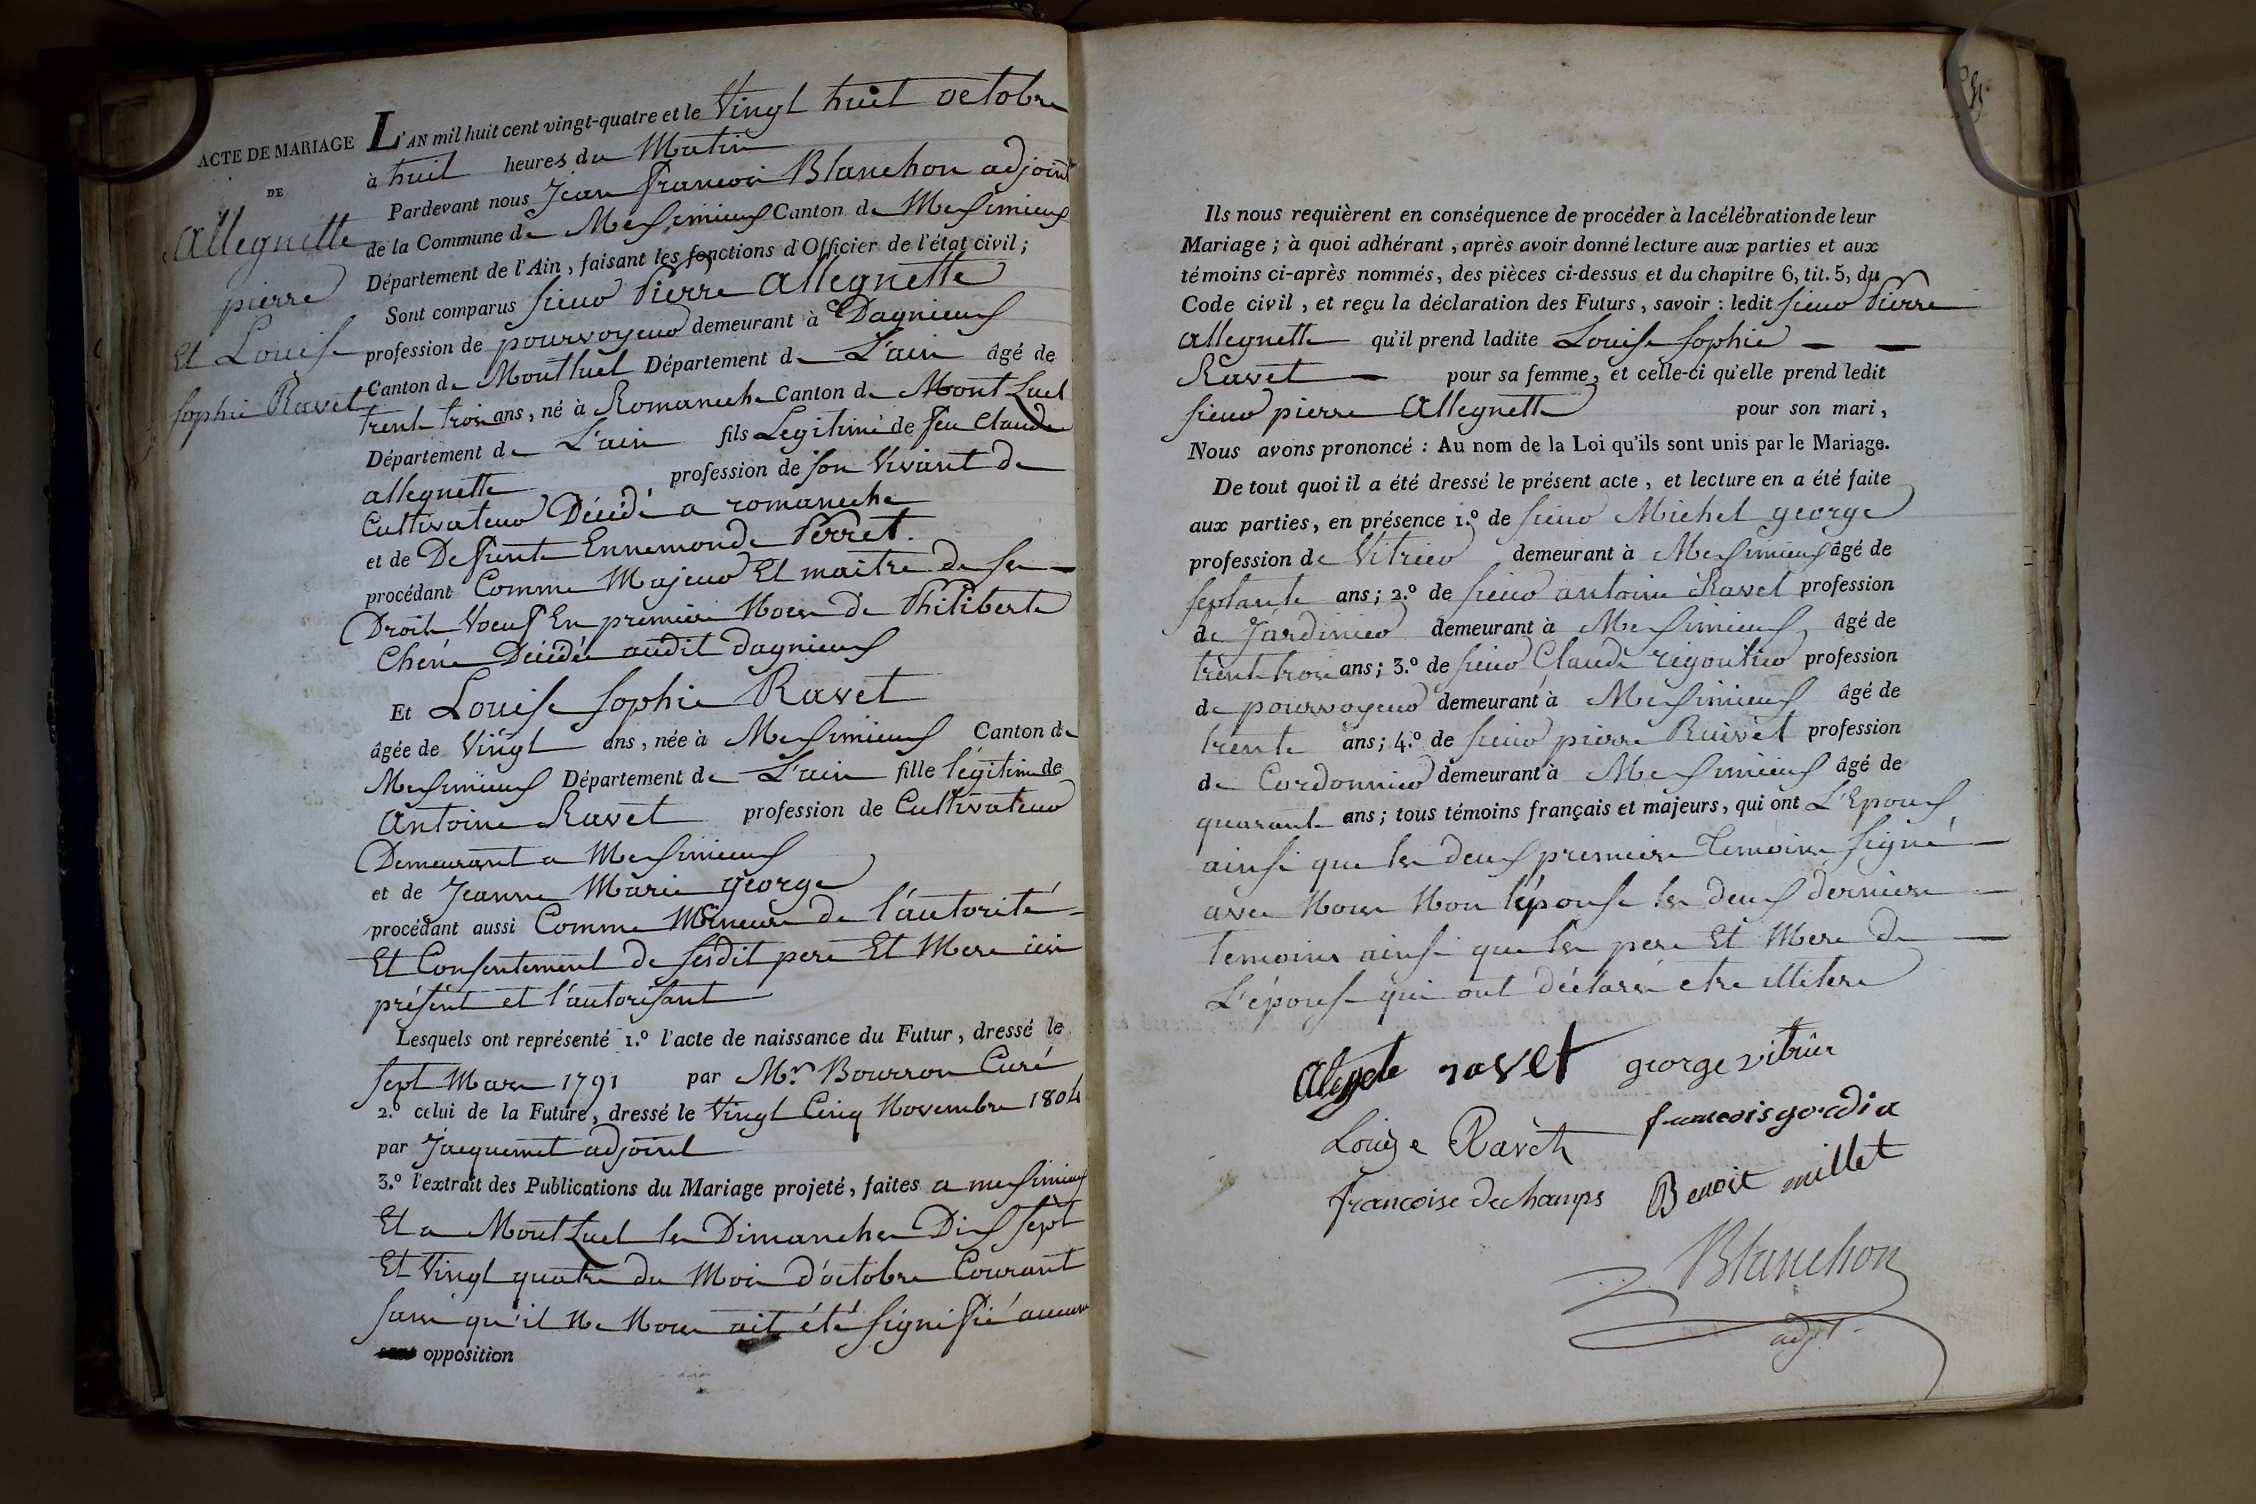 ACTE DE MARIAGE
DE
Allegnette
pierre
Et Louise
sophie Ravet
L'AN mil huit cent vingt-quatre et le Vingt huit octobre
à huit heures du Matin
Pardevant nous Jean francois Blanchon adjoint
de la Commune de Messimieux Canton de Messimieux
Département de l'Ain, faisant les fonctions d'Officier de l'état civil;
Sont comparus sieur Pierre Allegnette
profession de pourvoyeur demeurant à Dagnieux
Canton de Montluel Département de L'ain âgé de
trente trois ans, né à Romaneche Canton de Mont Luel
Département de L'ain fils Legitime de feu Claude
allegnette profession de son Vivant de
Cultivateur Décédé a romaneche
et de Defunte Ennemonde Perret.
procédant Comme Majeur Et maitre de ses
Droits Voeuf En premiere Noces de Philiberte
Chêne Décédée audit dagnieux
Et Louise sophie Ravet
âgée de Vingt ans, née à Messimieux Canton de
Messimieux Département de L'ain fille légitime de
Antoine Ravet profession de Cultivateur
Demeurant a Messimieux
et de Jeanne Marie george
procédant aussi Comme Mineure de l'autorité
Et Consentement de sesdit pere Et Mere ici
présent et l'autorisant
Lesquels ont représenté 1.º l'acte de naissance du Futur, dressé le
sept Mars 1791 par Mr. Bourron Curé
2.º celui de la Future, dressé le Vingt Cinq Novembre 1804
par Jacquemet adjoint
3.º l'extrait des Publications du Mariage projeté, faites a messimieux
Et a Mont Luel les Dimanches Dix sept
Et Vingt quatre du Mois d'octobre Courant
sans qu'il Ne Nous ait été signifié aucune
opposition
Ils nous requièrent en conséquence de procéder à la célébration de leur
Mariage; à quoi adhérant, après avoir donné lecture aux parties et aux
témoins ci-après nommés, des pièces ci-dessus et du chapitre 6, tit. 5, du
Code civil, et reçu la déclaration des Futurs, savoir: ledit sieur Pierre
allegnette qu'il prend ladite Louise sophie
Ravet pour sa femme, et celle-ci qu'elle prend ledit
sieur pierre Allegnette pour son mari,
Nous avons prononcé: Au nom de la Loi qu'ils sont unis par le Mariage.
De tout quoi il a été dressé le présent acte, et lecture en a été faite
aux parties, en présence 1.º de sieur Michel george
profession de Vitrier demeurant à Messimieux âgé de
septante ans; 2.º de sieur antoine Ravet profession
de Jardinier demeurant à Messimieux âgé de
trente trois ans; 3.º de sieur Claude rigoutier profession
de pourvoyeur demeurant à Messimieux âgé de
trente ans; 4.º de sieur pierre Ruivet profession
de Cordonnier demeurant à Messimieux âgé de
quarante ans; tous témoins français et majeurs, qui ont L'Epoux
ainsi que les deux premiers Temoins signé
avec Nous Non l'épouse les deux derniers
temoins ainsi que les pere Et Mere de
L'épouse qui ont déclaré etre illiteré
Allegnete ravet george vitrier
Louise Ravet francois gordia
francoise dechamps Benoit millet
Blanchon
adjt.